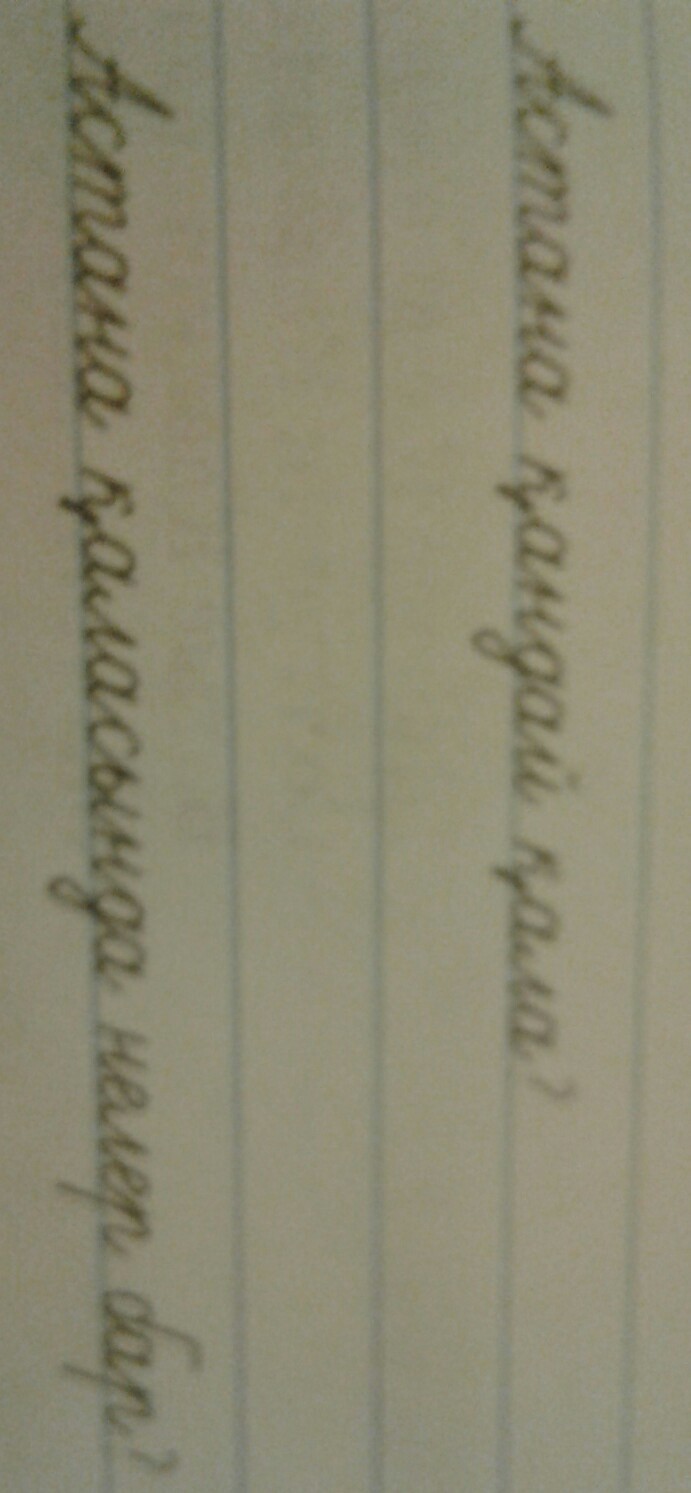 Астана қандай қала?
Астана қаласында нелер бар?